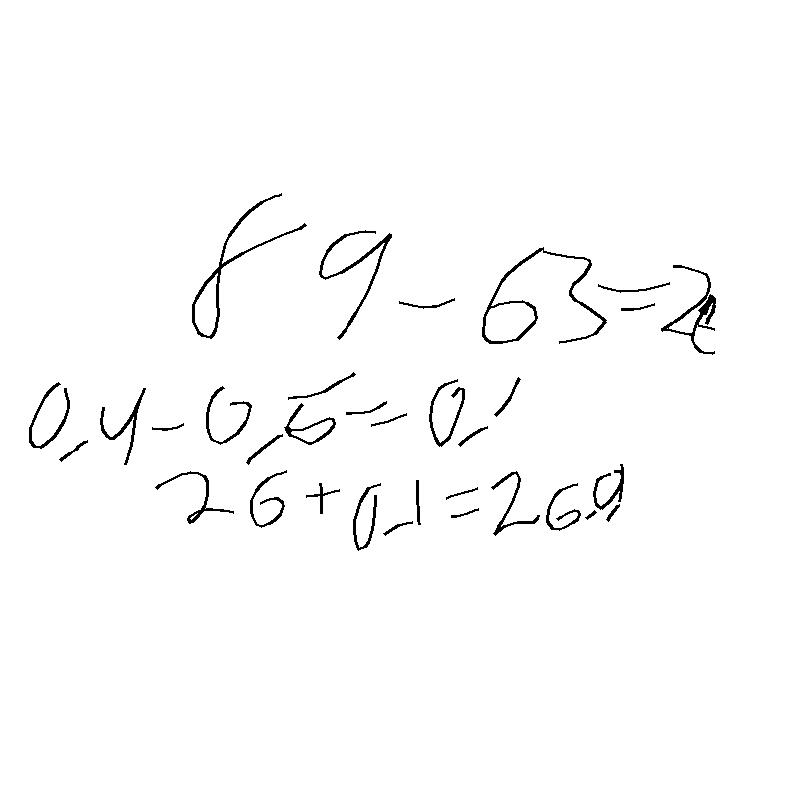 89-63=26
0,4-0,5=0,1
26+0,1=26,9